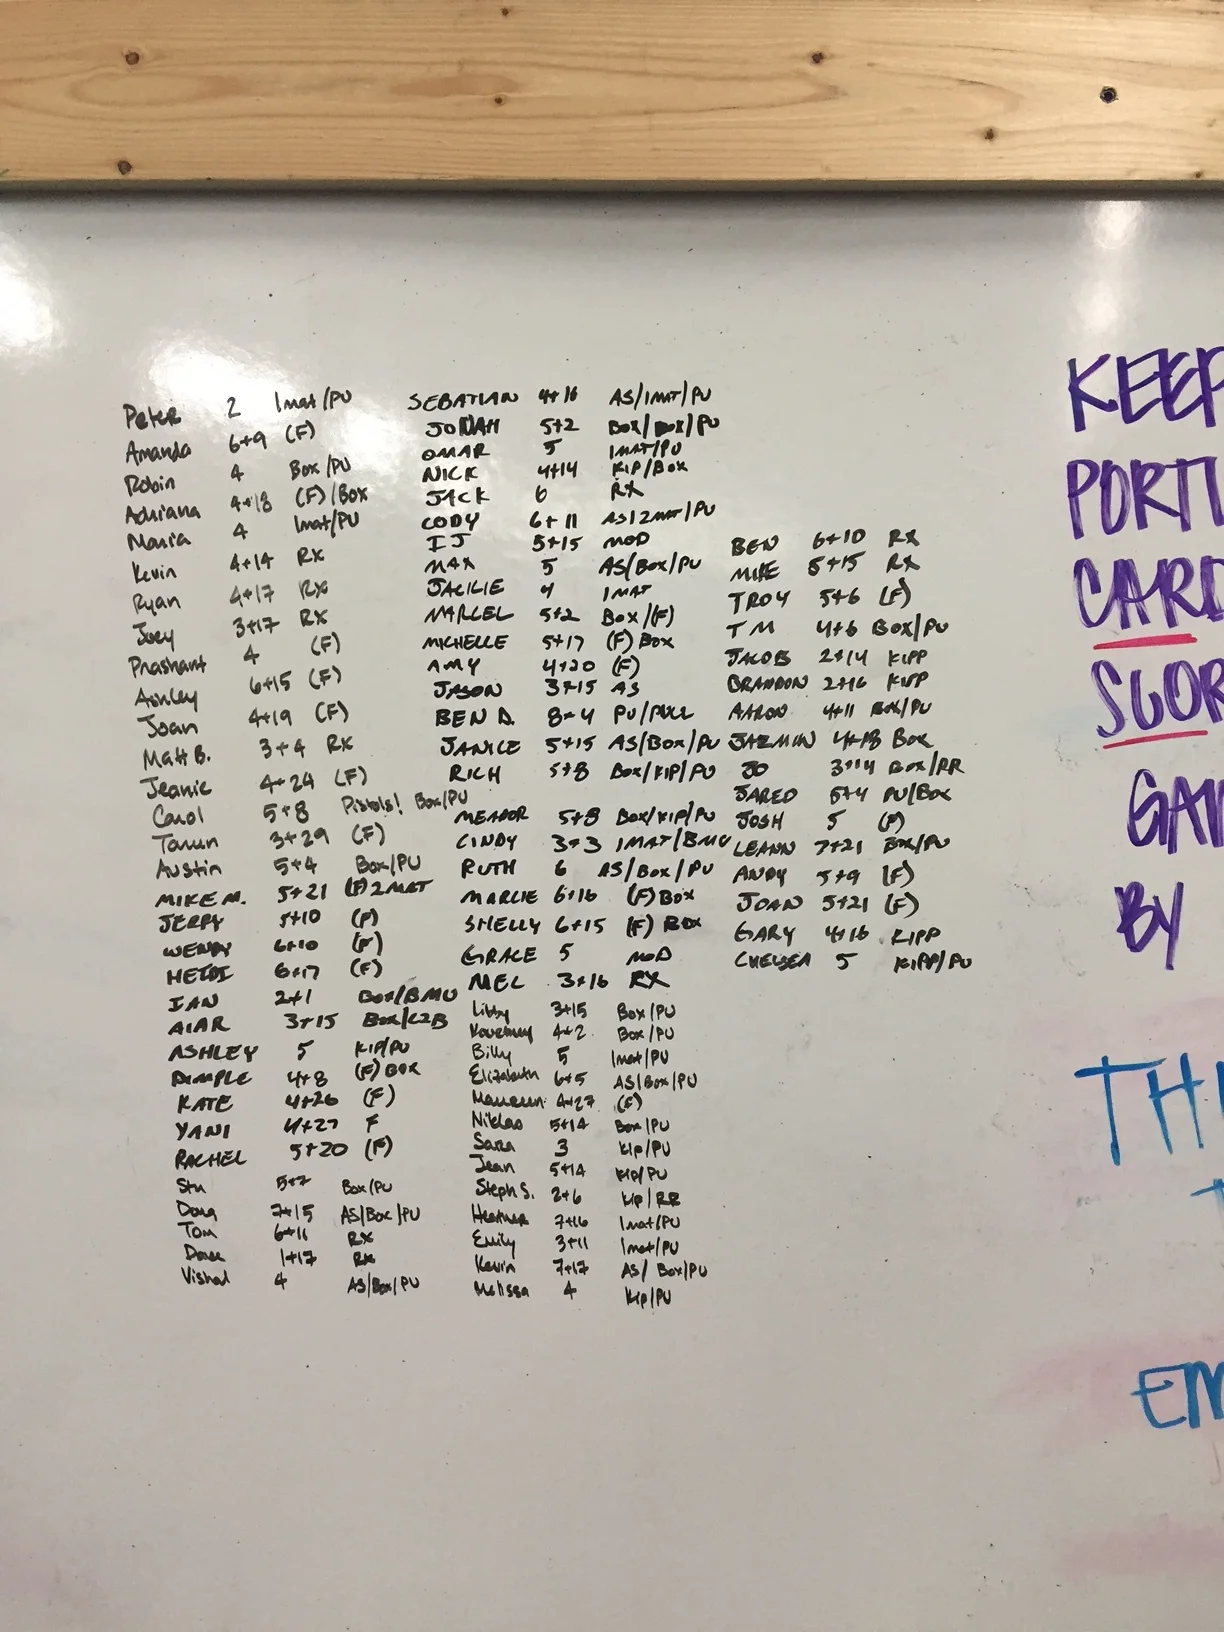 Peter 2 1mat/PU
Amanda 6+9 (F)
Robin 4 Box/PU
Adriana 4+18 (F)/Box
Maria 4 1mat/PU
Kevin 4+14 Rx
Ryan 4+17 Rx
Joey 3+17 Rx
Prashant 4 (F)
Ashley 6+15 (F)
Joan 4+19 (F)
Matt B. 3+4 Rx
Jeanie 4+24 (F)
Carol 5+8 Pistols! Box/PU
3+29 (F)
Austin 5+4 Box/PU
MIKE M. 5+21 (F) 2MAT
JERRY 5+10 (F)
WENDY 6+10 (F)
HEIDI 6+17 (F)
IAN 2+1 Box/BMU
AIAR 3+15 Box/C2B
ASHLEY 5 KIP/PU
DIMPLE 4+8 (F) BOX
KATE 4+26 (F)
YANI 4+27 F
RACHEL 5+20 (F)
Stu 5+7 Box/PU
Doug 7+15 AS/Box/PU
Tom 6+11 RX
Dave 1+17 RX
Vishal 4 AS/Box/PU
SEBATIAN 4+16 AS/1MAT/PU
JONAH 5+2 BOX/BOX/PU
OMAR 5 1MAT/PU
NICK 4+14 KIP/BOX
JACK 6 RX
CODY 6+11 AS/2MAT/PU
IJ 5+15 MOD
MAX 5 AS/BOX/PU
JACKIE 4 1MAT
MARCEL 5+2 BOX/(F)
MICHELLE 5+17 (F) BOX
AMY 4+20 (F)
JASON 3+15 AS
BEN D. 8+4 PU/PULL
JANICE 5+15 AS/BOX/PU
RICH 5+8 BOX/KIP/PU
MEADOR 5+8 BOX/KIP/PU
CINDY 3+3 1MAT/BMU
RUTH 6 AS/BOX/PU
MARCIE 6+16 (F) BOX
SHELLY 6+15 (F) BOX
GRACE 5 MOD
MEL 3+16 RX
Libby 3+15 Box/PU
Kourtney 4+2 Box/PU
Billy 5 1mat/PU
Elizabeth 6+5 AS/Box/PU
Maureen 4+27 (F)
Niklas 5+14 Box/PU
Sara 3 Kip/PU
Jean 5+14 Kip/PU
Steph S. 2+6 Kip/RR
Heather 7+16 1mat/PU
Emily 3+11 1mat/PU
Kevin 7+17 AS/Box/PU
Melissa 4 Kip/PU
BEN 6+10 RX
MIKE 5+15 RX
TROY 5+6 (F)
TM 4+6 BOX/PU
JACOB 2+14 KIPP
BRANDON 2+16 KIPP
AARON 4+11 BOX/PU
JAZMIN 4+18 BOX
JO 3+14 BOX/RR
JARED 5+4 PU/BOX
JOSH 5 (F)
LEANN 7+21 BOX/PU
ANDY 5+9 (F)
JOAN 5+21 (F)
GARY 4+16 KIPP
CHELSEA 5 KIPP/PU
KEEP
PORTI
CARD
SCOR
GAM
BY
TH
EM